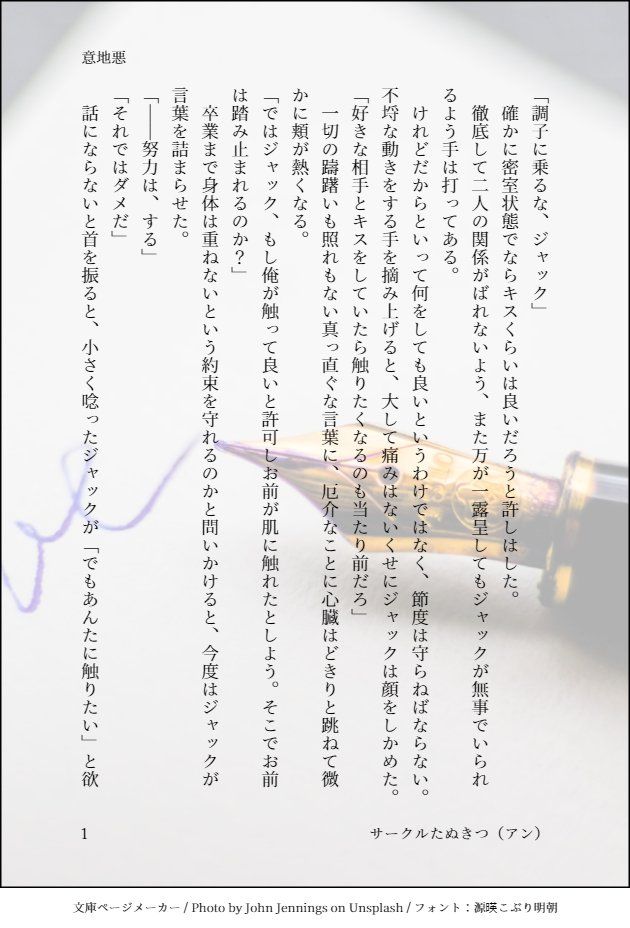 意地悪
「調子に乗るな、ジャック」
確かに密室状態でならキスくらいは良いだろうと許しはした。
徹底して二人の関係がばれないよう、また万が一露呈してもジャックが無事でいられ
るよう手は打ってある。
けれどだからといって何をしても良いというわけではなく、節度は守らねばならない。
不埒な動きをする手を摘み上げると、大して痛みはないくせにジャックは顔をしかめた。
「好きな相手とキスをしていたら触りたくなるのも当たり前だろ」
一切の躊躇いも照れもない真っ直ぐな言葉に、厄介なことに心臓はどきりと跳ねて微
かに頬が熱くなる。
「ではジャック、もし俺が触って良いと許可しお前が肌に触れたとしよう。そこでお前
は踏み止まれるのか？」
卒業まで身体は重ねないという約束を守れるのかと問いかけると、今度はジャックが
言葉を詰まらせた。
「――努力は、する」
「それではダメだ」
話にならないと首を振ると、小さく唸ったジャックが「でもあんたに触りたい」と欲
1
サークルたぬきつ（アン）
文庫ページメーカー / Photo by John Jennings on Unsplash / フォント：源暎こぶり明朝